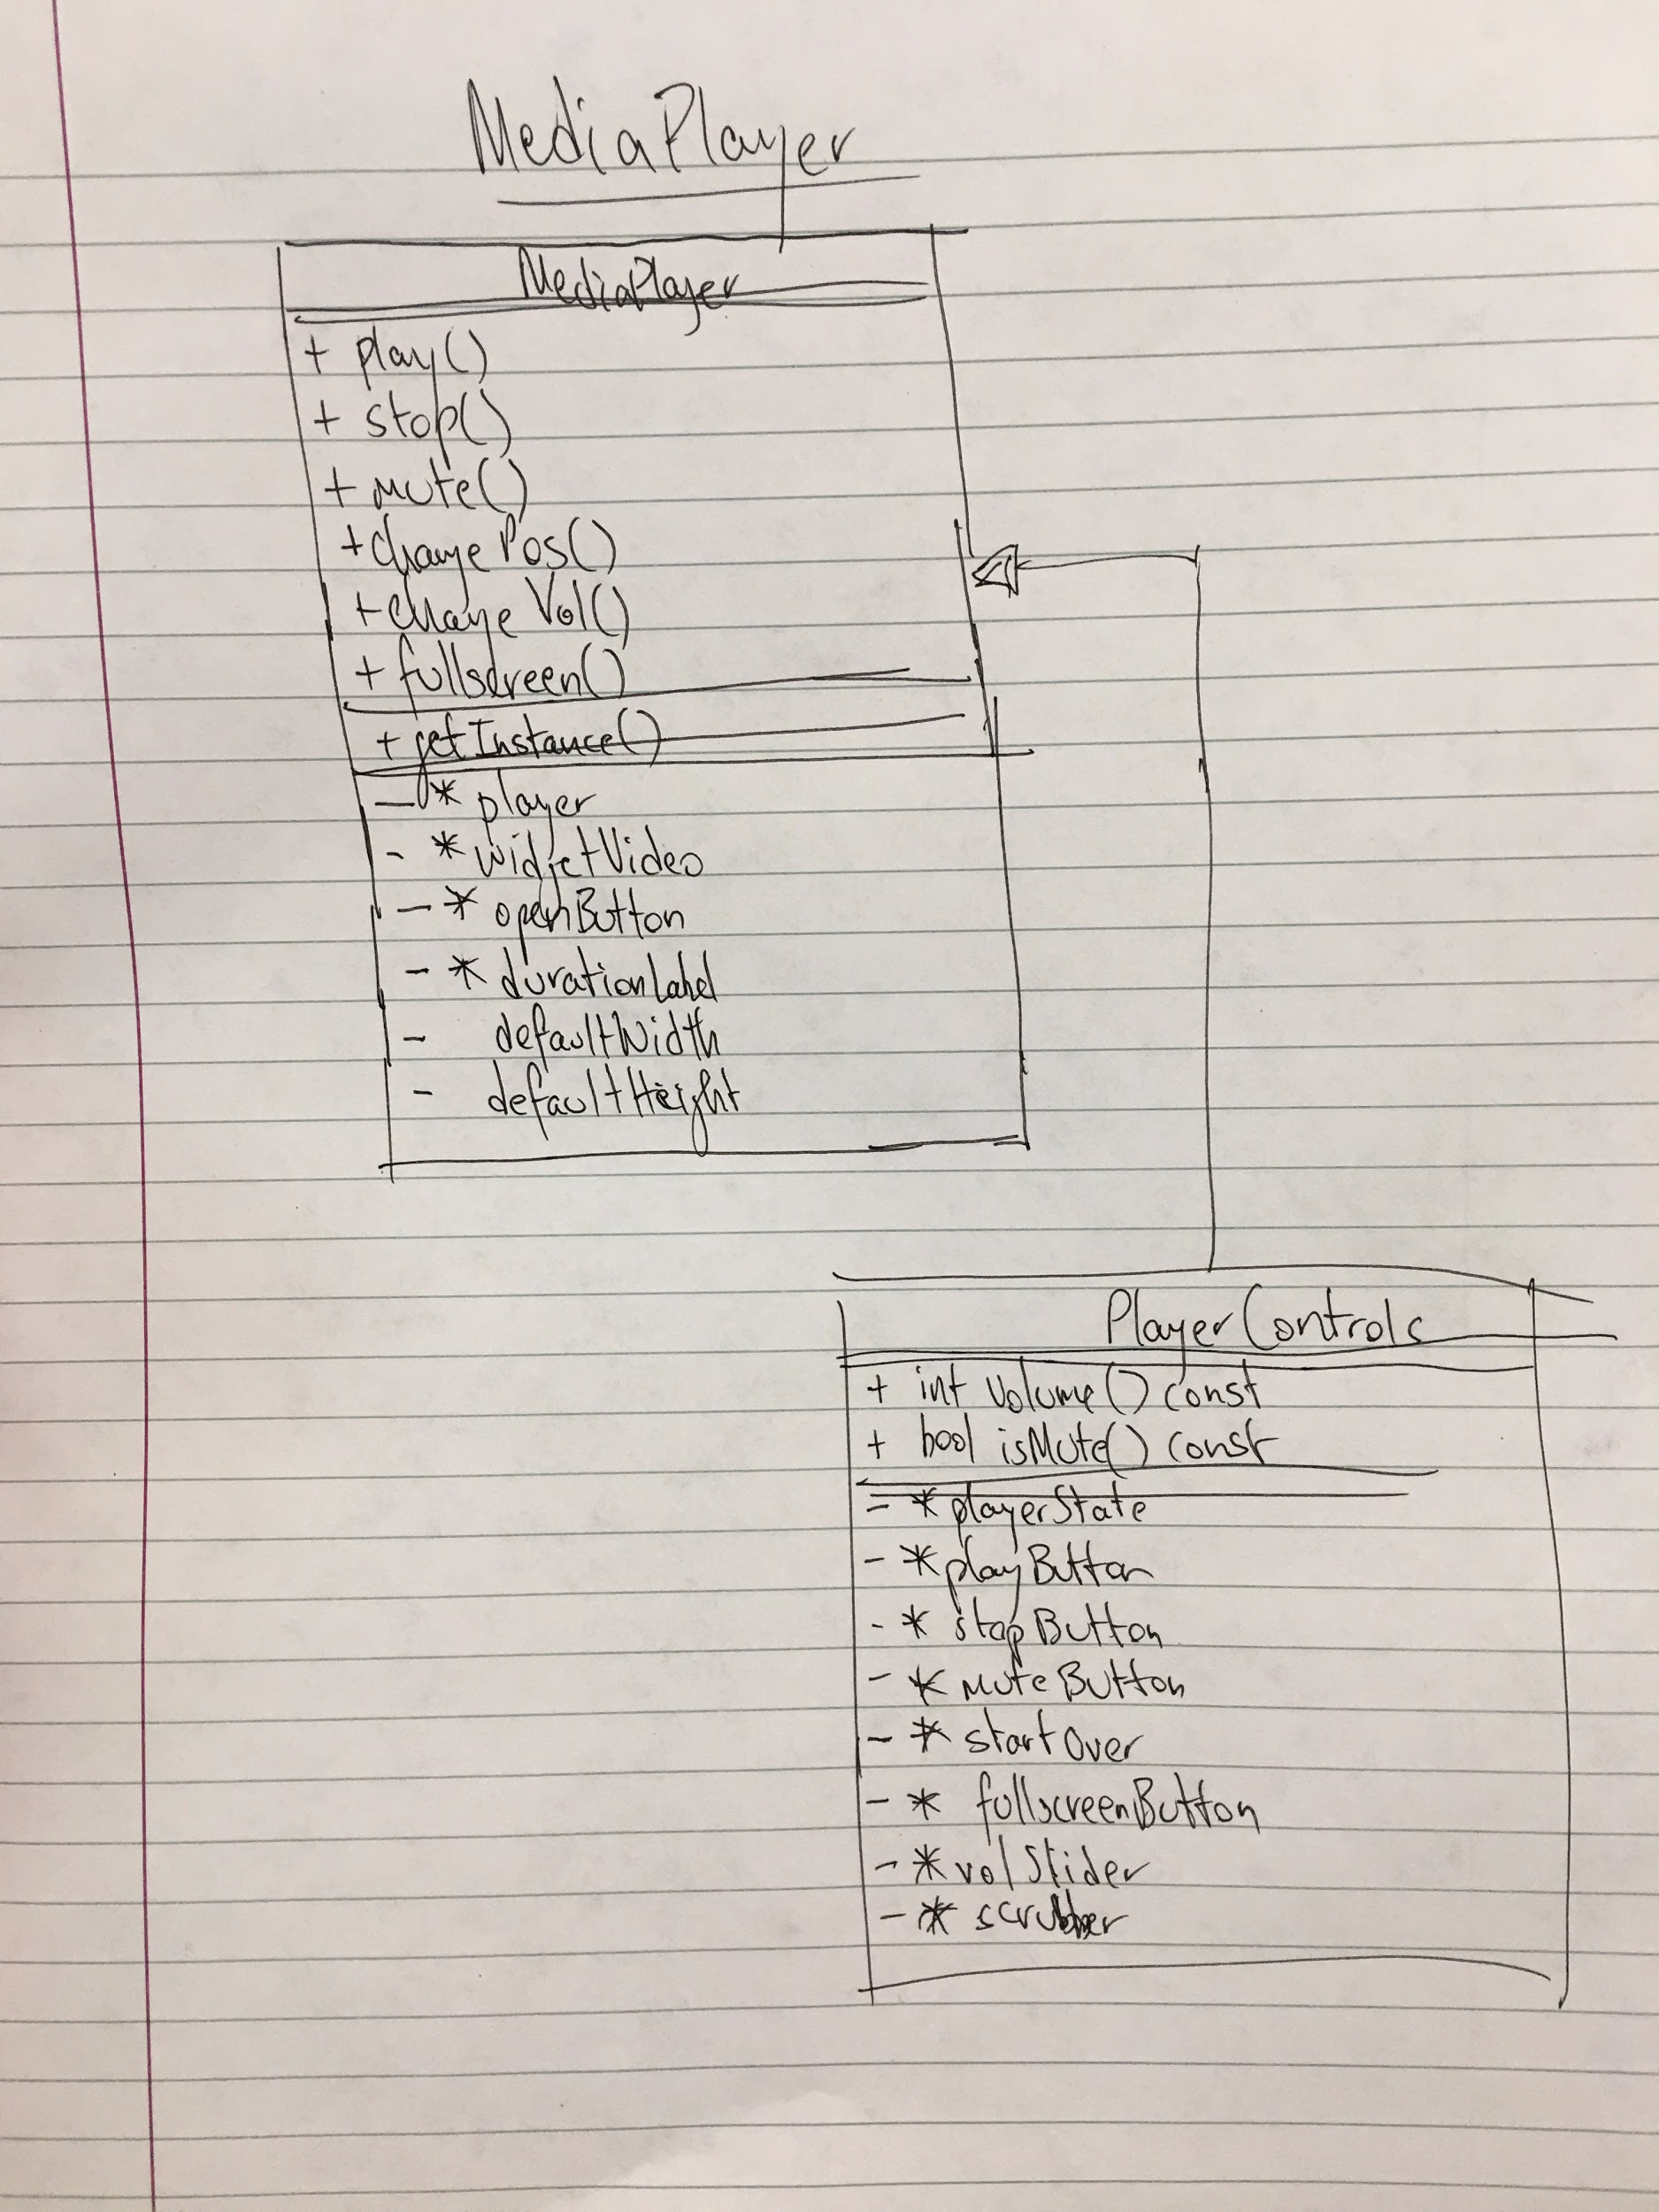 MediaPlayer
MediaPlayer
+ play()
+ stop()
+ mute()
+ changePos()
+ changeVol()
+ fullscreen()
+ getInstance()
- * player
- * widgetVideo
- * openButton
- * durationLabel
- defaultWidth
- defaultHeight
PlayerControls
+ int volume() const
+ bool isMute() const
- * playerState
- * playButton
- * stopButton
- * muteButton
- * startOver
- * fullscreenButton
- * volSlider
- * scrubber